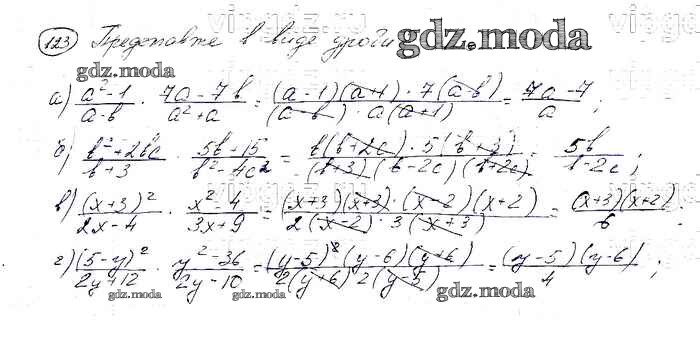 123 Представьте в виде дроби gdz.moda
gdz.moda
а) (a² - 1)/(a - b) · (7a - 7b)/(a² + a) = ((a - 1)(a + 1) · 7(a - b))/((a - b) · a(a + 1)) = (7a - 7)/a ;
б) (b² + 2bc)/(b + 3) · (5b + 15)/(b² - 4c²) = (b(b + 2c) · 5(b + 3))/((b + 3)(b - 2c)(b + 2c)) = 5b/(b - 2c) ;
в) (x + 3)²/(2x - 4) · (x² - 4)/(3x + 9) = ((x + 3)(x + 3) · (x - 2)(x + 2))/(2(x - 2) · 3(x + 3)) = ((x + 3)(x + 2))/6
г) (5 - y)²/(2y + 12) · (y² - 36)/(2y - 10) = ((y - 5)²(y - 6)(y + 6))/(2(y + 6) 2(y - 5)) = ((y - 5)(y - 6))/4 ;
gdz.moda gdz.moda